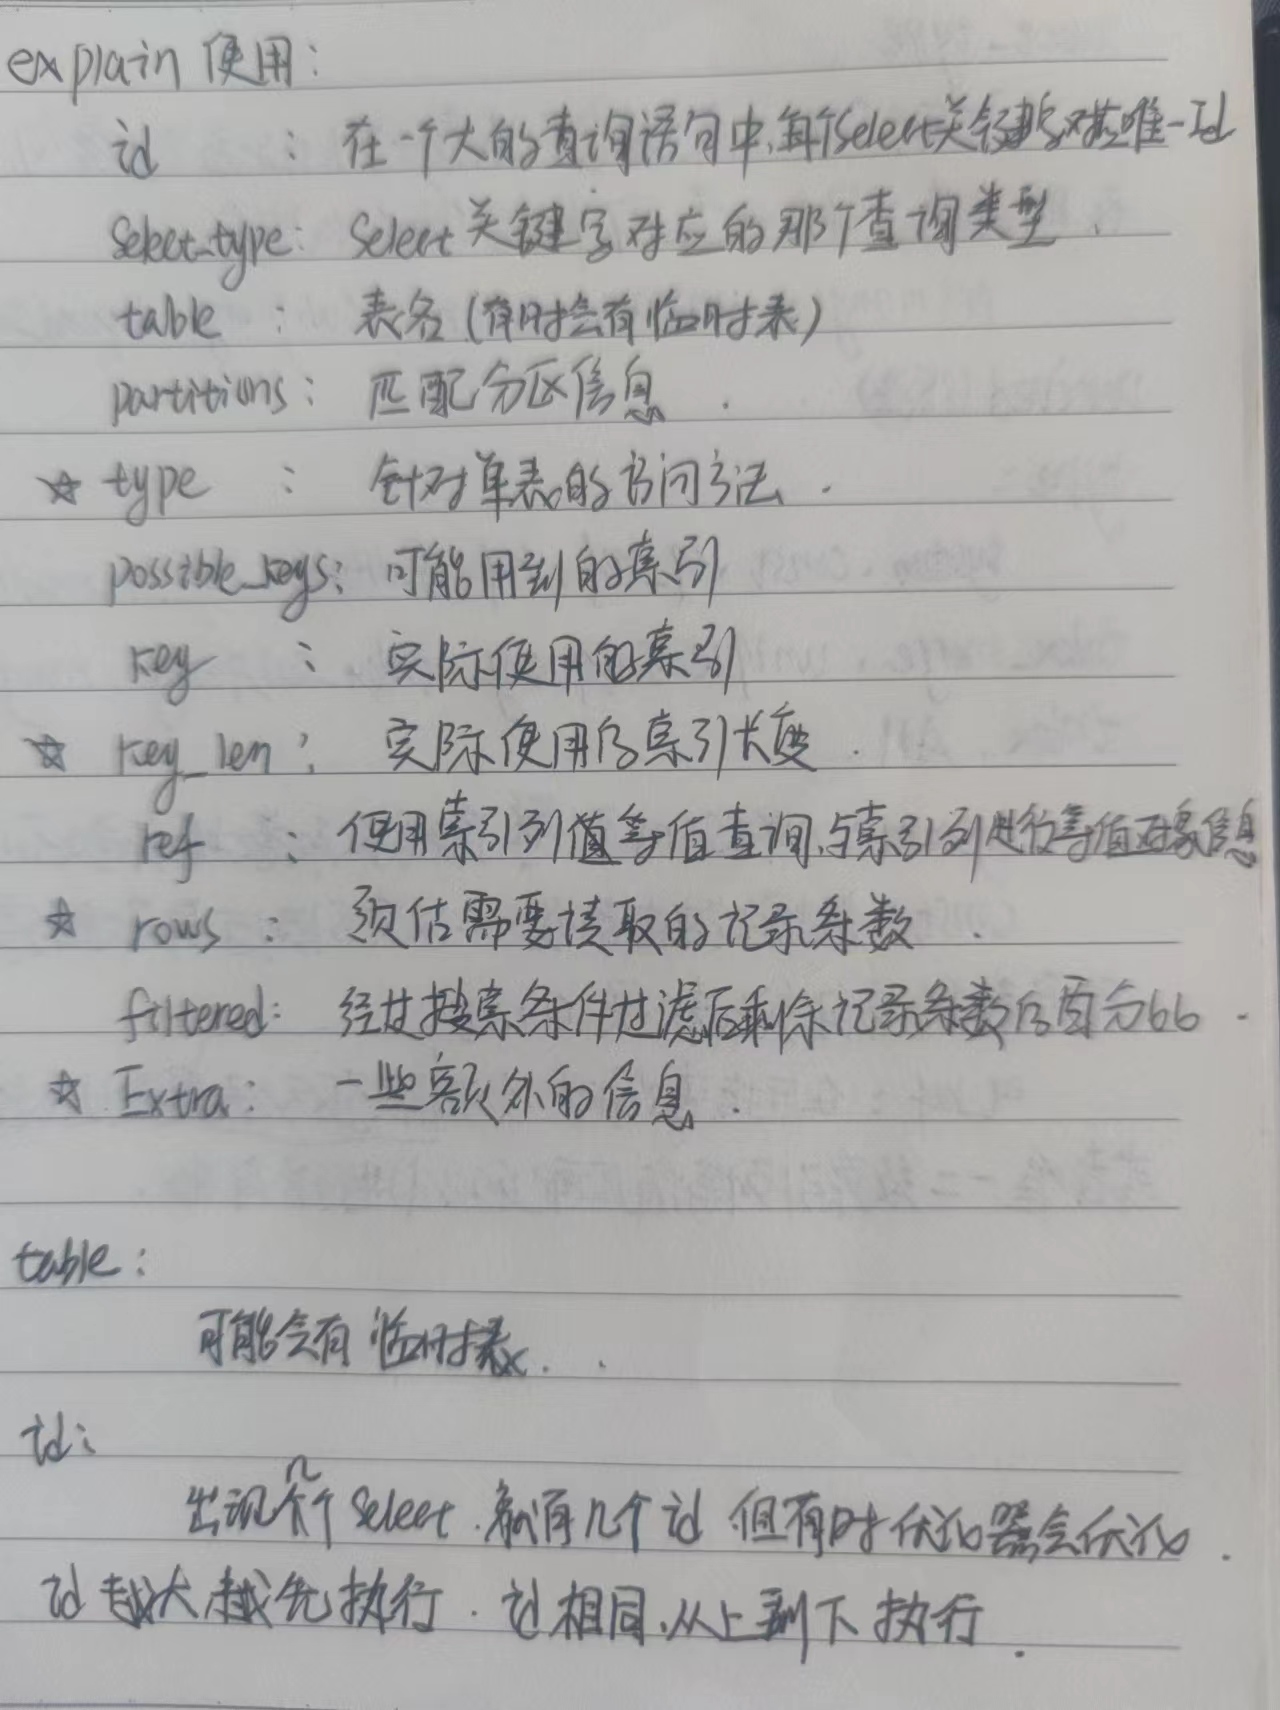 explain 使用:
id : 在一个大的查询语句中,每个select关键字对应唯一Id
Select_type: Select关键字对应的那个查询类型.
table : 表名(有时会有临时表)
partitions: 匹配分区信息.
☆ type : 针对单表的访问方法.
possible_keys: 可能用到的索引
key : 实际使用的索引
☆ key_len: 实际使用的索引长度.
ref : 使用索引列值等值查询,与索引列进行等值对象信息
☆ rows : 预估需要读取的记录条数.
filtered: 经过搜索条件过滤后剩余记录条数的百分比.
☆ Extra: 一些额外的信息.
table:
可能会有临时表.
id:
出现几个Select.就有几个id 但有时优化器会优化.
id越大越先执行.id相同,从上到下执行.